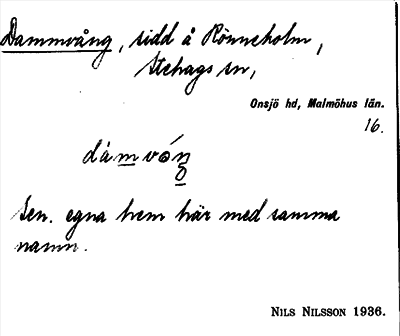 Dammvång, sidd å Rönneholm,
Stehags sn,
Onsjö hd, Malmöhus län.
16.
Sen. egna hem här med samma
namn.
NILS NILSSON 1936.